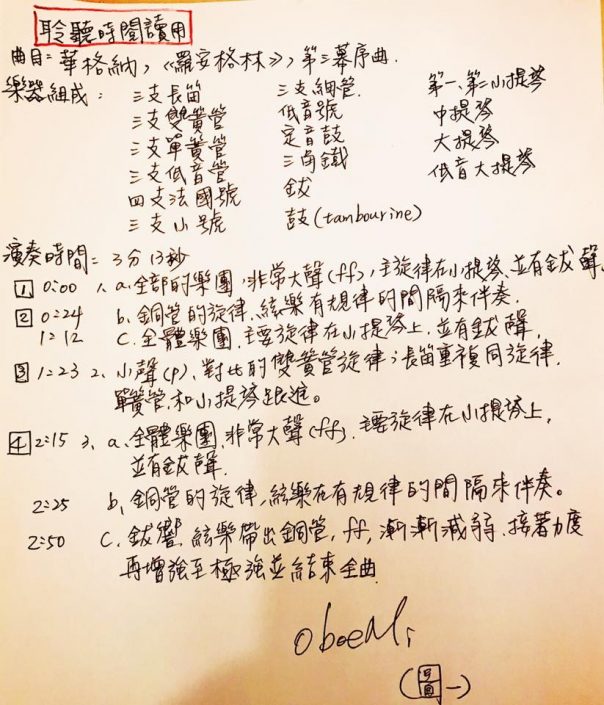 聆聽時閱讀用
曲目：華格納，《羅安格林》，第三幕序曲.
樂器組成： 三支長笛 三支細管. 第一、第二小提琴
三支雙簧管 低音號 中提琴
三支單簧管 定音鼓 大提琴
三支低音管 三角鐵 低音大提琴
四支法國號 鈸
三支小號 鼓(tambourine)
演奏時間= 3分13秒
1 0:00 1, a.全部的樂團,非常大聲(ff),主旋律在小提琴.並有鈸聲.
2 0:24 b.銅管的旋律,絃樂有規律的間隔來伴奏.
1:12 c.全體樂團.主要旋律在小提琴上.並有鈸聲,
3 1:23 2、小聲(p),對比的雙簧管旋律;長笛重複同旋律.
單簧管.和小提琴跟進。
4 2:15 3, a.全體樂團.非常大聲(ff).主要旋律在小提琴上,
並有鈸聲.
2:25 b,銅管的旋律,絃樂在有規律的間隔來伴奏。
2:50 c.鈸響.絃樂帶出銅管,ff,漸漸減弱.接著力度
再增強至極強並結束全曲
oboeMi
(圖一)